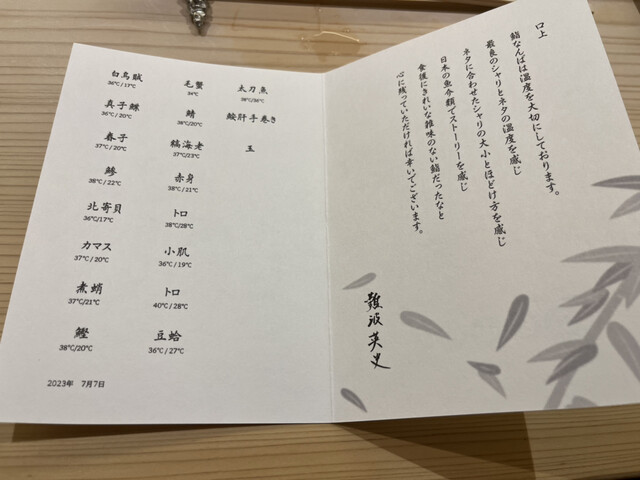 口上
鮨なんばは温度を大切にしております。
最良のシャリとネタの温度を感じ
ネタに合わせたシャリの大小とほどけ方を感じ
日本の魚介類でストーリーを感じ
食後にきれいな雑味のない鮨だったなと
心に残っていただければ幸いでございます。
難波英史
白烏賊
36℃/17℃
真子鰈
36℃/20℃
春子
37℃/20℃
鯵
38℃/22℃
北寄貝
36℃/17℃
カマス
37℃/20℃
煮蛸
37℃/21℃
鰹
38℃/20℃
毛蟹
36℃
鯖
38℃/20℃
縞海老
37℃/23℃
赤身
38℃/21℃
トロ
38℃/28℃
小肌
36℃/19℃
トロ
40℃/28℃
豆蛤
36℃/27℃
太刀魚
38℃/36℃
鮟肝手巻き
玉
2023年 7月7日